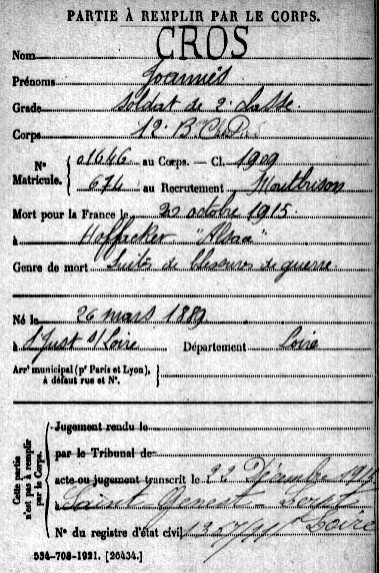 PARTIE À REMPLIR PAR LE CORPS.
Nom CROS
Prénoms Joannès
Grade Soldat de 2e classe
Corps 12e B.
Nº Matricule. 01646 au Corps. — Cl. 1909
674 au Recrutement Montbrison
Mort pour la France le 20 octobre 1915
à "Alsace"
Genre de mort Suites de blessures de guerre
Né le 26 mars 1889
à St Just s/Loire Département Loire
Arrt municipal (pr Paris et Lyon), à défaut rue et Nº.
Cette partie n'est pas à remplir par le Corps.
Jugement rendu le
par le Tribunal de
acte ou jugement transcrit le 22 Décembre
Saint Genest Loire
Nº du registre d'état civil
534-708-1921. [26434.]